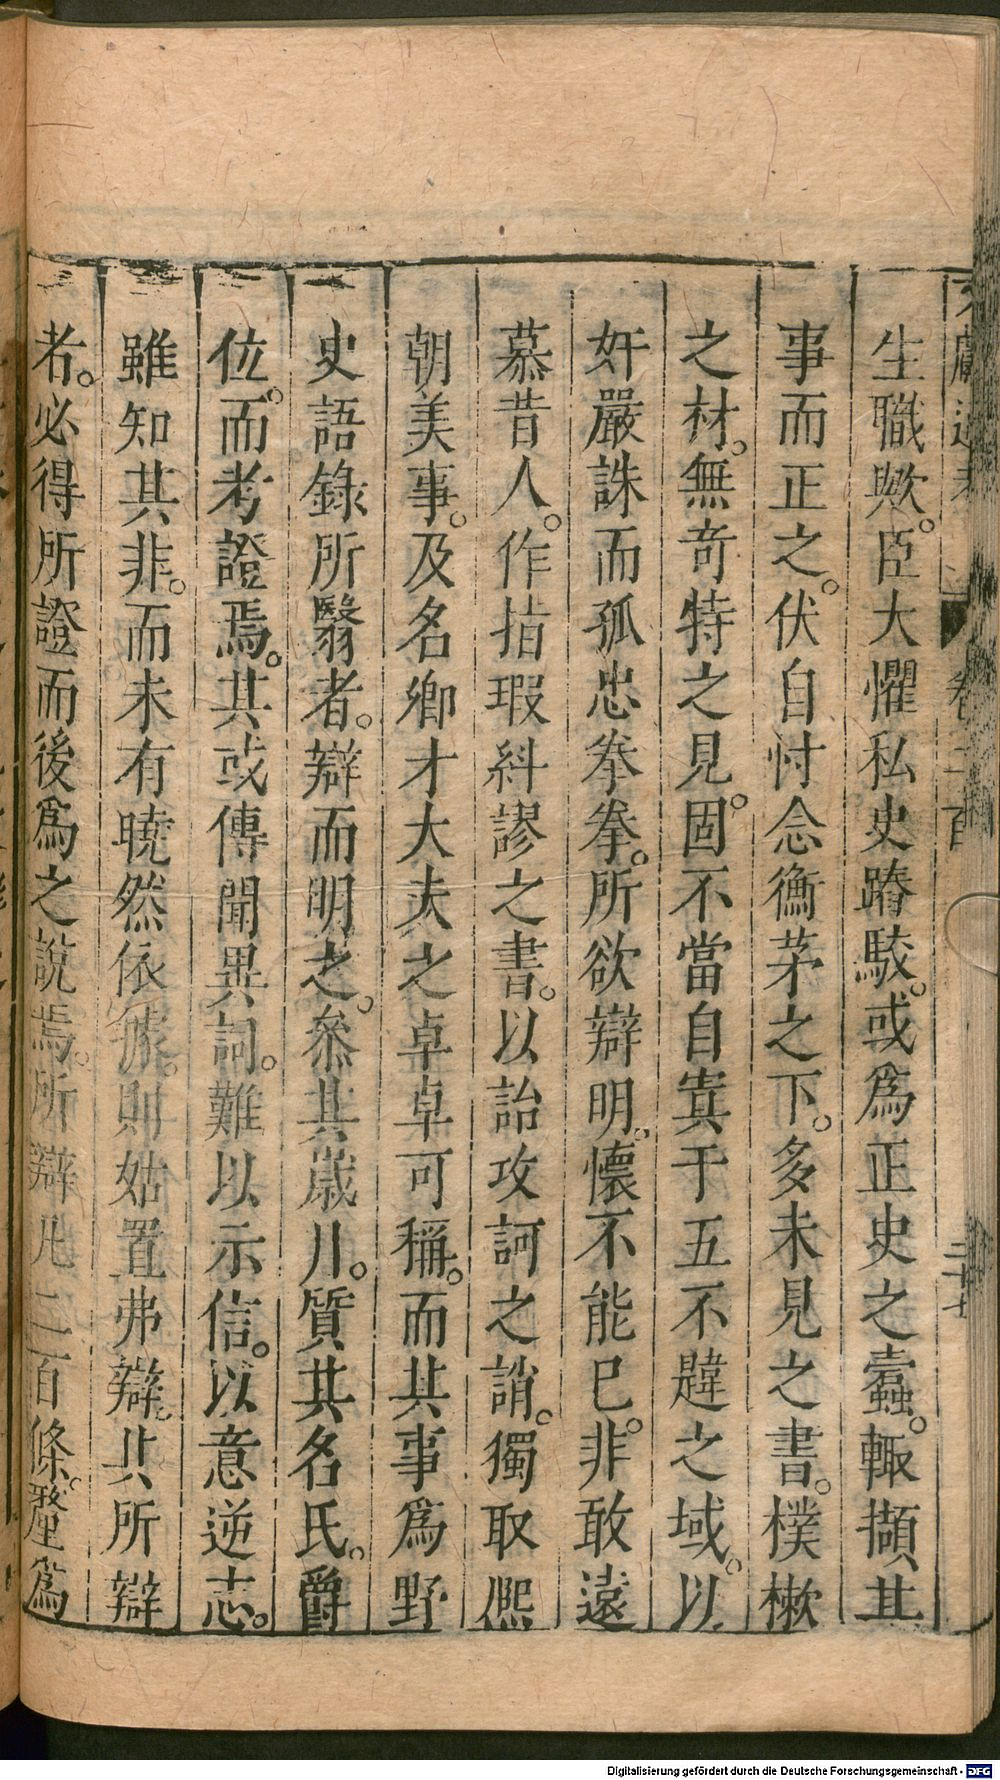 文獻通考 卷二百 二十七
生職歟。臣大懼私史踳駁。或爲正史之蠹。輙擷其
事而正之。伏自忖念衡茅之下。多未見之書。樸樕
之材。無奇特之見。固不當自寘于五不韙之域。以
奸嚴誅而孤忠拳拳。所欲辯明。懷不能已。非敢遠
慕昔人。作指瑕糾謬之書。以詒攻訶之誚。獨取熙
朝美事。及名卿才大夫之卓卓可稱。而其事爲野
史語錄所翳者。辯而明之。叅其歲月。質其名氏。爵
位。而考證焉。其或傳聞異詞。難以示信。以意逆志。
雖知其非。而未有曉然依據。則姑置弗辯。其所辯
者。必得所證而後爲之說焉。所辯凡二百條。釐爲
Digitalisierung gefördert durch die Deutsche Forschungsgemeinschaft - DFG